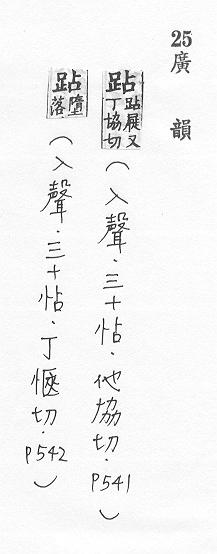 25
廣韻
跕跕屣又丁協切(入聲.三十怗.他協切.P541)
跕墮落(入聲.三十怗.丁愜切.P542)